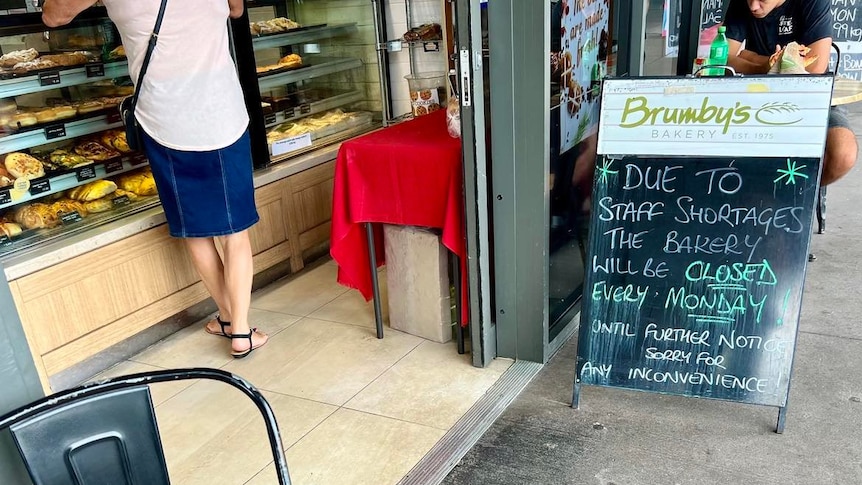 Brumby's
BAKERY EST. 1975
DUE TO
STAFF SHORTAGES
THE BAKERY
WILL BE CLOSED
EVERY MONDAY!
UNTIL FURTHER NOTICE
SORRY FOR
ANY INCONVENIENCE!